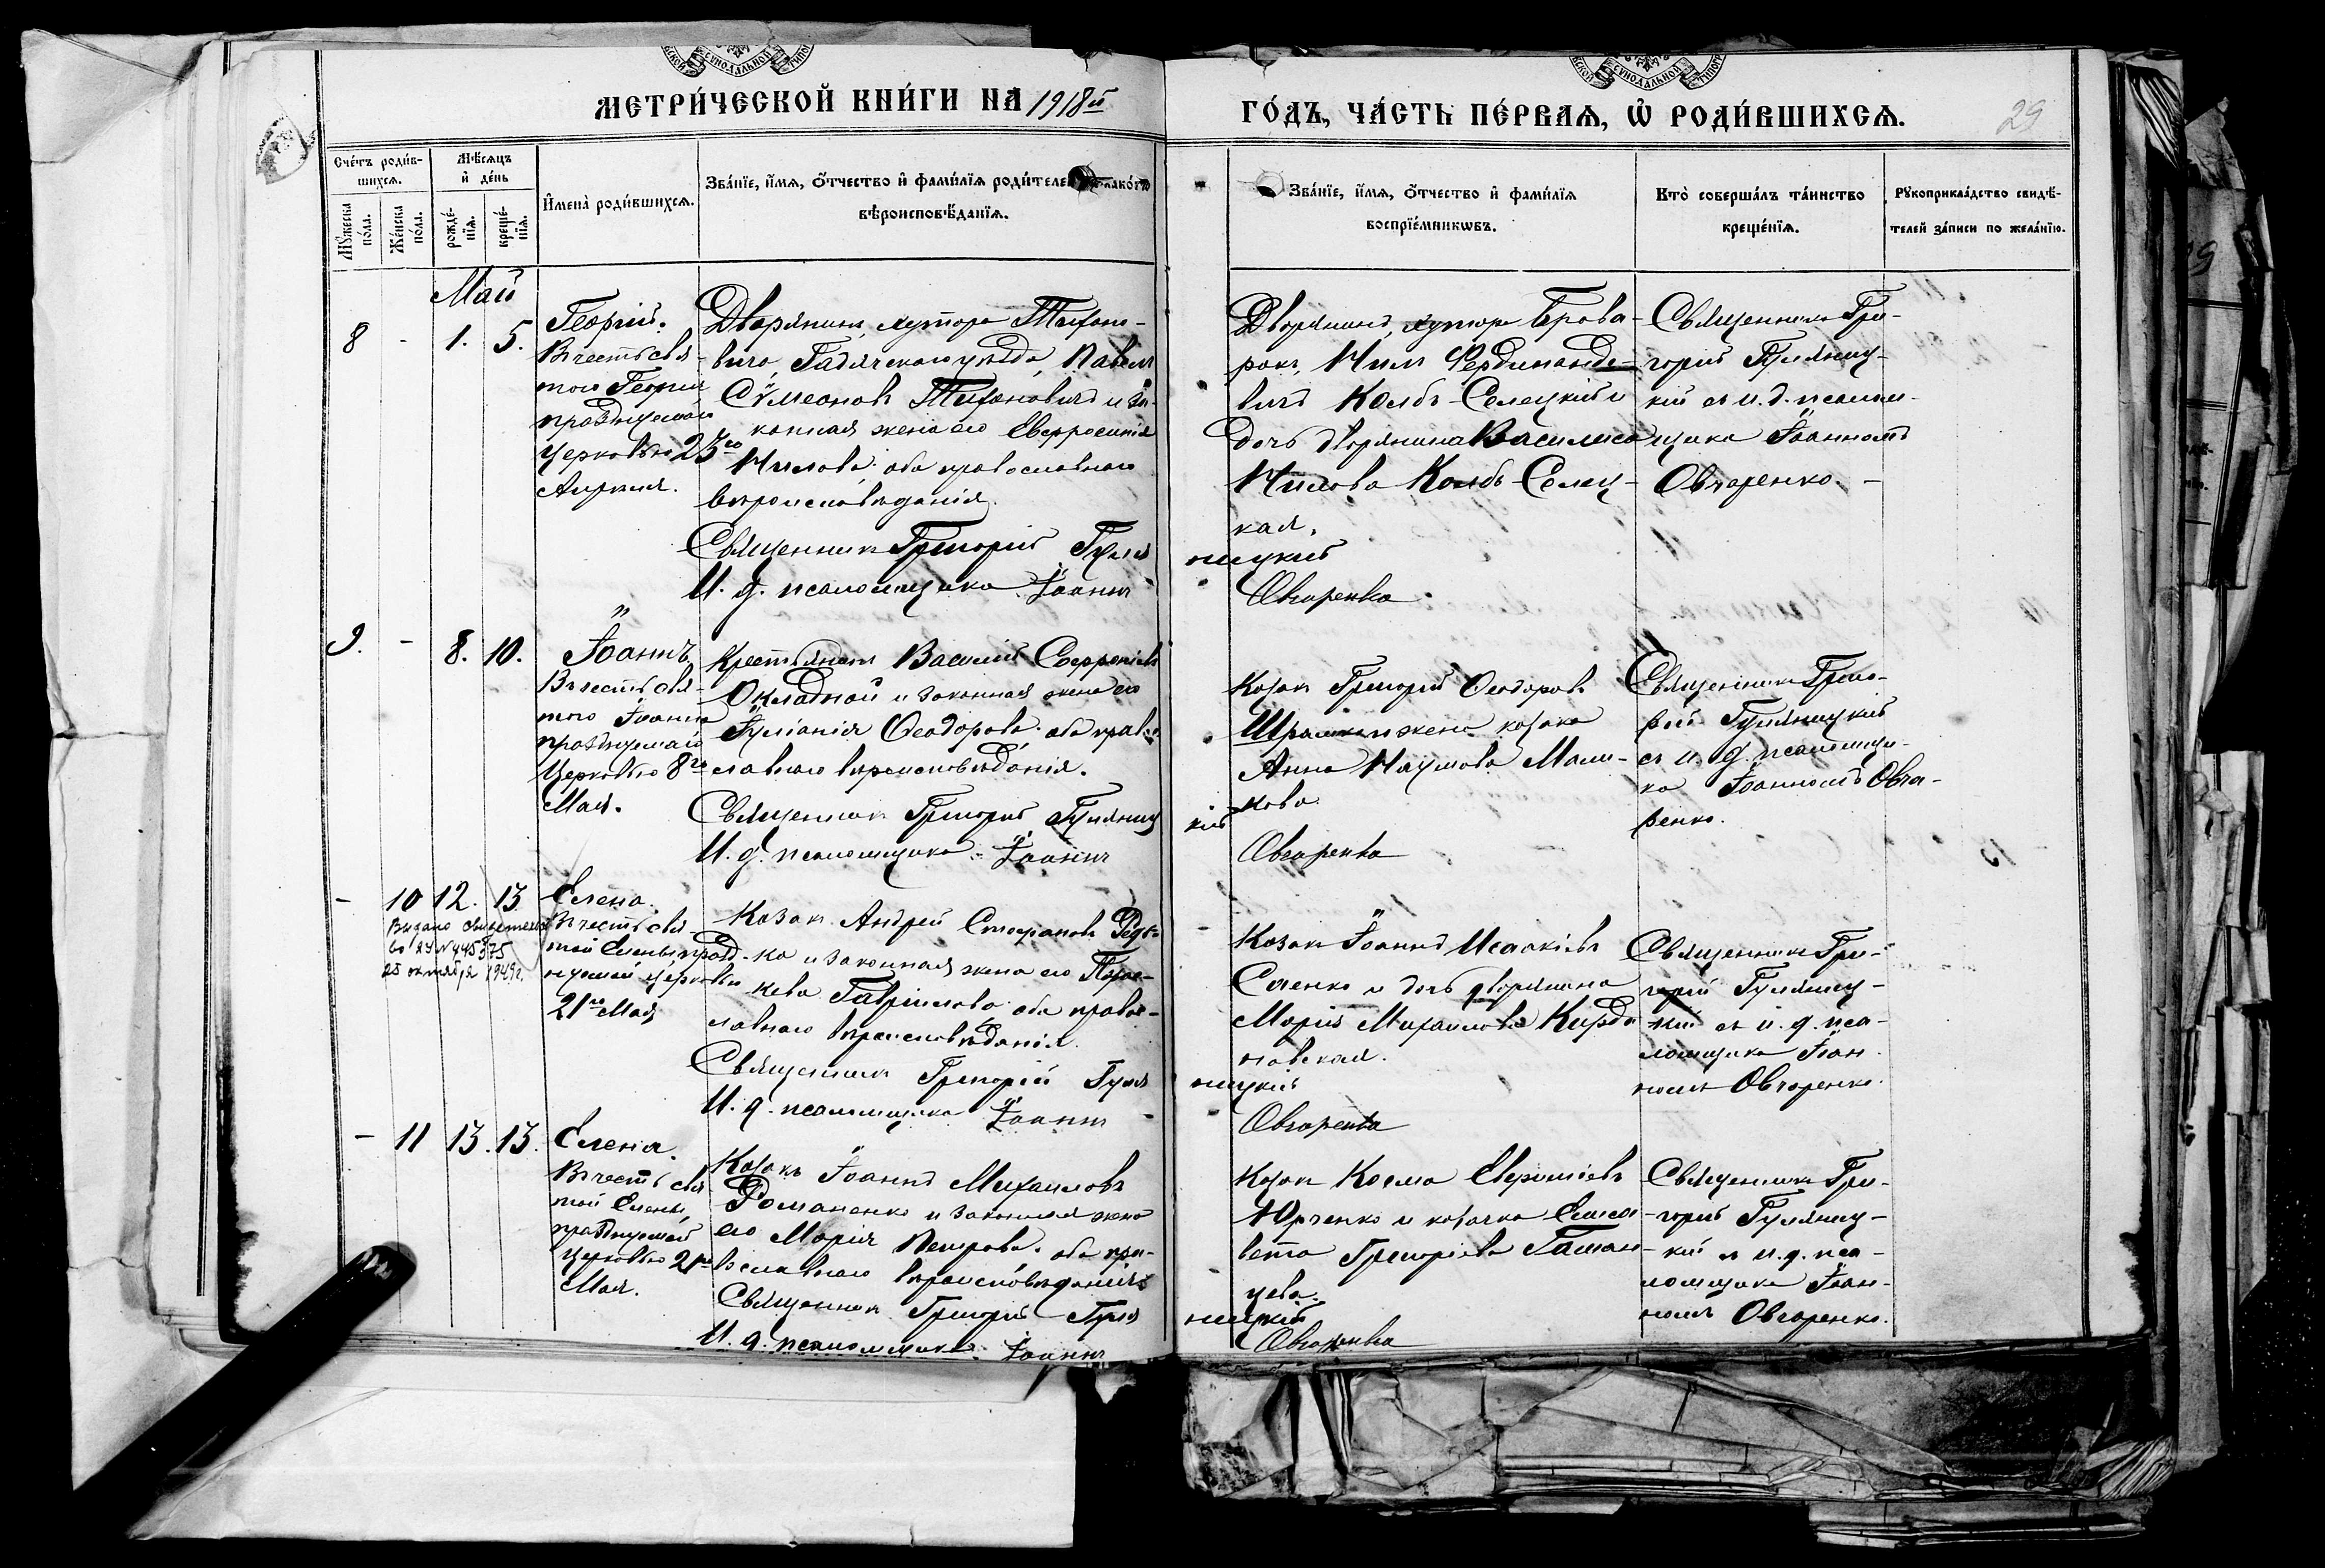 МЕТРИ́ЧЕСКОЙ КНИ́ГИ НА 1918й
ГО́ДЪ, ЧА́СТЬ ПЕ́РВАЯ, Ѡ РОДИ́ВШИХСЯ.
29
Сче́тъ роди́в-
шихся.
Мѣ́сяцъ
и де́нь
Мꙋ́жеска
по́ла.
Же́нска
по́ла.
рожде́-
нїя.
креще́-
нїя.
И҆мена̀ роди́вшихся.
Зва́нїе, и҆́мя, ѻ҆́тчество и҆ фами́лїя роди́телей
вѣроисповѣ́данїя.
Зва́нїе, и҆́мя, ѻ҆́тчество и҆ фами́лїя
воспрїе́мникѡвъ.
Кто̀ соверша́лъ та́инство
креще́нїя.
Рꙋкоприкла́дство свидѣ́-
телей за́писи по жела́нїю.
Май
8 - 1. 5.
Георгій.
Въ честь свя-
того Георгія
празднуемаго
Церковью 23го
Апрѣля.
Дворянинъ, хутора Тихоно-
вича, Гадячскаго уѣзда, Павелъ
Сѵмеоновъ Тихоновичъ и за-
конная жена его Евфросинія
Нилова оба православнаго
вѣроисповѣданія.
Священникъ Григорій Гуля
ницкій
И. д. псаломщика Іоаннъ
Овчаренко
Дворянинъ, хутора Брова-
рокъ, Нилъ Фердинандо-
вичъ Колбъ-Селецкій и
дочь дворянина Василиса
Нилова Колбъ-Селец-
кая.
Священникъ Гри-
горій Гуляниц-
кій съ и. д. псалом-
щика Іоанномъ
Овчаренко. -
9. - 8. 10.
Іоаннъ
Въ честь свя-
того Іоанна
празднуемаго
Церковью 8го
Мая.
Крестьянинъ Василій Софроніевъ
Окладной и законная жена его
Іуліанія Ѳеодорова оба право-
славнаго вѣроисповѣданія.
Священникъ Григорій Гуляниц
кій
И. д. псаломщика Іоаннъ
Овчаренко
Козакъ Григорій Ѳеодоровъ
жена козака
Анна Наумова Мали-
нова
Священникъ Григо-
рій Гуляницкій
съ и. д. псаломщи-
ка Іоанномъ Овча-
ренко.
- 10 12. 13
25 октября 1949г.
Елена.
Въ честь свя-
той Елены, празд-
нуемой церковью
21го Мая
Козакъ Андрей Стефановъ Редь-
ка и законная жена его Парас-
кева Гавріилова оба право-
славнаго вѣроисповѣданія
Священникъ Григорій Гуля
ницкій
И. д. псаломщика Іоаннъ
Овчаренко
Козакъ Іоаннъ Исаакіевъ
Саенко и дочь дворянина
Марія Михаилова Кирдa
новская.
Священникъ Гри-
горій Гуляниц-
кій съ и. д. пса-
ломщика Іоан
номъ Овчаренко.
- 11 13. 13.
Елена.
Въ честь свя
той Елены,
празднуемой
Церковью 21го
Мая.
Козакъ Іоаннъ Михаиловъ
Романенко и законная жена
его Марія Петрова. оба пра-
вославнаго вѣроисповѣданія
Священникъ Григорій Гуля
ницкій
И. д. псаломщика Іоаннъ
Овчаренко
Козакъ Косма Евфиміевъ
Юрченко и козачка Елиса
вета Григоріева Гаман-
цева.
Священникъ Гри-
горій Гуляниц-
кій съ и. д. пса-
ломщика Іоан-
номъ Овчаренко.